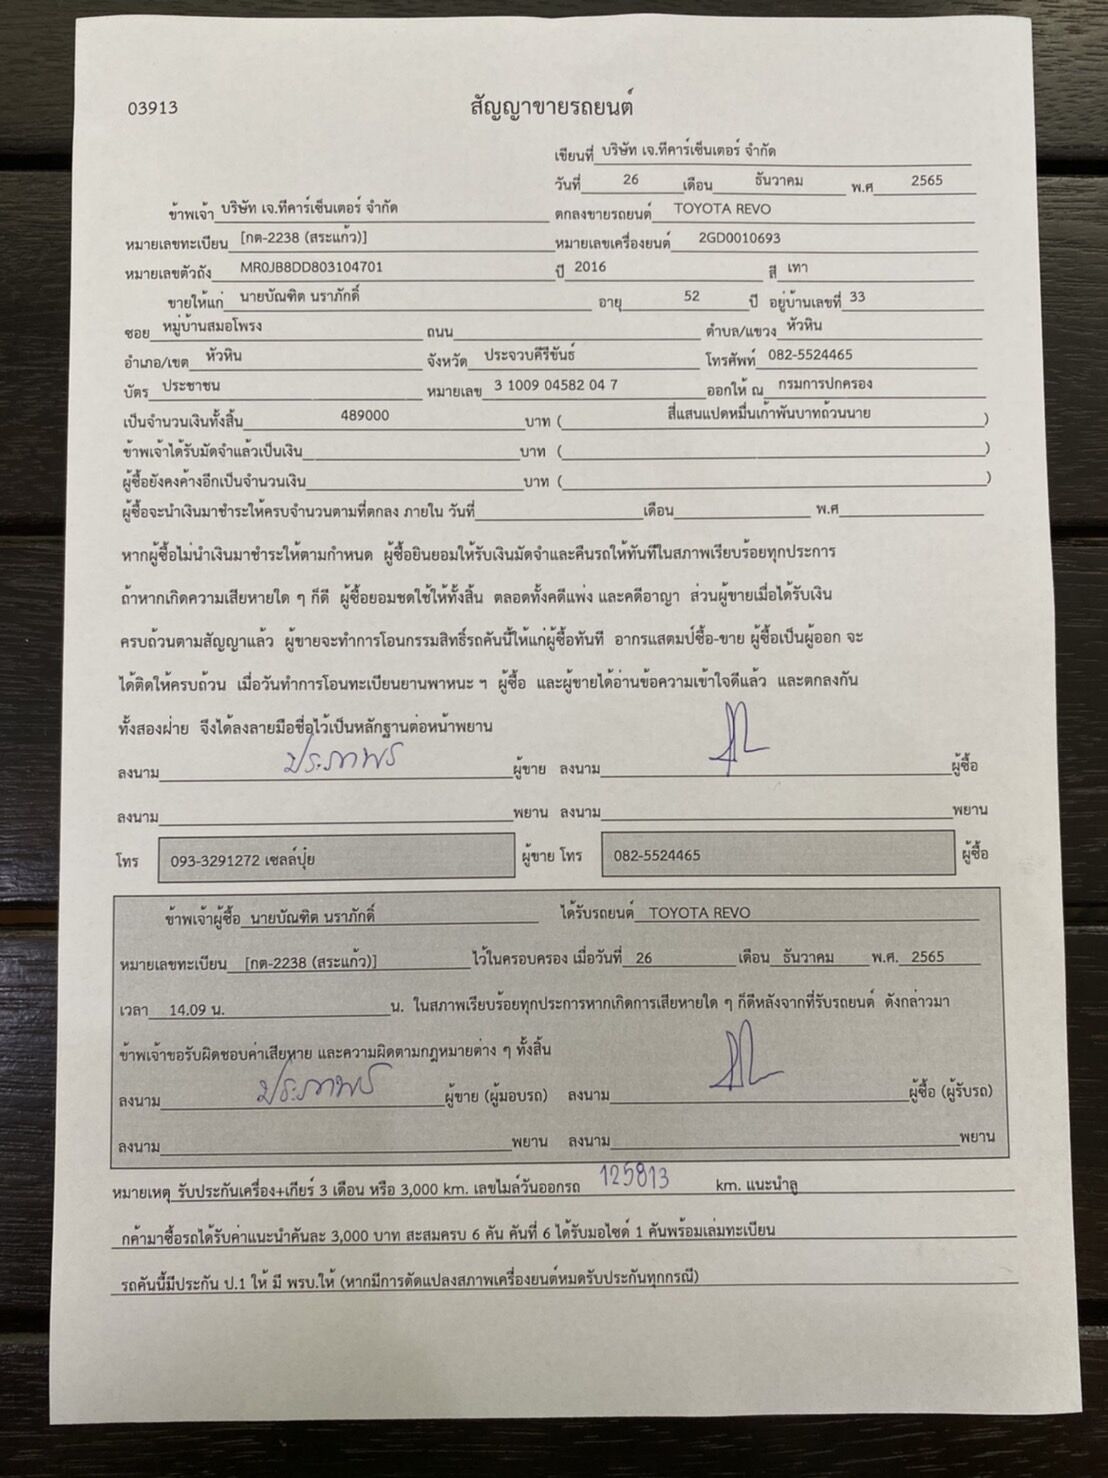 03913
สัญญาขายรถยนต์
เขียนที่ บริษัท เจ.ทีคาร์เซ็นเตอร์ จำกัด
วันที่ 26 เดือน ธันวาคม พ.ศ 2565
ข้าพเจ้า บริษัท เจ.ทีคาร์เซ็นเตอร์ จำกัด ตกลงขายรถยนต์ TOYOTA REVO
หมายเลขทะเบียน [กต-2238 (สระแก้ว)] หมายเลขเครื่องยนต์ 2GD0010693
หมายเลขตัวถัง MR0JB8DD803104701 ปี 2016 สี เทา
ขายให้แก่ นายบัณฑิต นราภักดิ์ อายุ 52 ปี อยู่บ้านเลขที่ 33
ซอย หมู่บ้านสมอโพรง ถนน ตำบล/แขวง หัวหิน
อำเภอ/เขต หัวหิน จังหวัด ประจวบคีรีขันธ์ โทรศัพท์ 082-5524465
บัตร ประชาชน หมายเลข 3 1009 04582 04 7 ออกให้ ณ กรมการปกครอง
เป็นจำนวนเงินทั้งสิ้น 489000 บาท ( สี่แสนแปดหมื่นเก้าพันบาทถ้วนนาย )
ข้าพเจ้าได้รับมัดจำแล้วเป็นเงิน บาท ( )
ผู้ซื้อยังคงค้างอีกเป็นจำนวนเงิน บาท ( )
ผู้ซื้อจะนำเงินมาชำระให้ครบจำนวนตามที่ตกลง ภายใน วันที่ เดือน พ.ศ
หากผู้ซื้อไม่นำเงินมาชำระให้ตามกำหนด ผู้ซื้อยินยอมให้รับเงินมัดจำและคืนรถให้ทันทีในสภาพเรียบร้อยทุกประการ
ถ้าหากเกิดความเสียหายใด ๆ ก็ดี ผู้ซื้อยอมชดใช้ให้ทั้งสิ้น ตลอดทั้งคดีแพ่ง และคดีอาญา ส่วนผู้ขายเมื่อได้รับเงิน
ครบถ้วนตามสัญญาแล้ว ผู้ขายจะทำการโอนกรรมสิทธิ์รถคันนี้ให้แก่ผู้ซื้อทันที อากรแสตมป์ซื้อ-ขาย ผู้ซื้อเป็นผู้ออก จะ
ได้ติดให้ครบถ้วน เมื่อวันทำการโอนทะเบียนยานพาหนะ ฯ ผู้ซื้อ และผู้ขายได้อ่านข้อความเข้าใจดีแล้ว และตกลงกัน
ทั้งสองฝ่าย จึงได้ลงลายมือชื่อไว้เป็นหลักฐานต่อหน้าพยาน
ลงนาม ประภาพร ผู้ขาย ลงนาม ผู้ซื้อ
ลงนาม พยาน ลงนาม พยาน
โทร 093-3291272 เซลล์ปุ๋ย ผู้ขาย โทร 082-5524465 ผู้ซื้อ
ข้าพเจ้าผู้ซื้อ นายบัณฑิต นราภักดิ์ ได้รับรถยนต์ TOYOTA REVO
หมายเลขทะเบียน [กต-2238 (สระแก้ว)] ไว้ในครอบครอง เมื่อวันที่ 26 เดือน ธันวาคม พ.ศ. 2565
เวลา 14.09 น. น. ในสภาพเรียบร้อยทุกประการหากเกิดการเสียหายใด ๆ ก็ดีหลังจากที่รับรถยนต์ ดังกล่าวมา
ข้าพเจ้าขอรับผิดชอบค่าเสียหาย และความผิดตามกฎหมายต่าง ๆ ทั้งสิ้น
ลงนาม ประภาพร ผู้ขาย (ผู้มอบรถ) ลงนาม ผู้ซื้อ (ผู้รับรถ)
ลงนาม พยาน ลงนาม พยาน
หมายเหตุ รับประกันเครื่อง+เกียร์ 3 เดือน หรือ 3,000 km. เลขไมล์วันออกรถ 125813 km. แนะนำลู
กค้ามาซื้อรถได้รับค่าแนะนำคันละ 3,000 บาท สะสมครบ 6 คัน คันที่ 6 ได้รับมอไซด์ 1 คันพร้อมเล่มทะเบียน
รถคันนี้มีประกัน ป.1 ให้ มี พรบ.ให้ (หากมีการดัดแปลงสภาพเครื่องยนต์หมดรับประกันทุกกรณี)